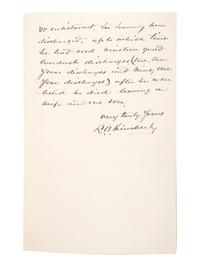 re enlistment, he having been
discharged, up to which time
he had recd nineteen good
conduct discharges (
Years discharges and nine, one
Year discharges) after he
he died leaving a
wife and one son.
Very truly Yours
L.A. Kimberly